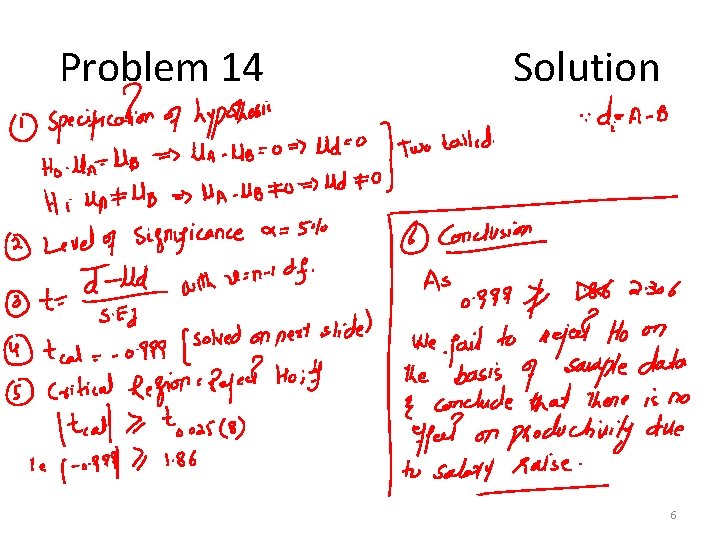 Problem 14 Solution
① Specification of hypothesis
∵ dᵢ = A - B
H₀: μA = μB => μA - μB = 0 => μd = 0
Two tailed.
H₁: μA ≠ μB => μA - μB ≠ 0 => μd ≠ 0
② Level of Significance α = 5%
③ t = d̄ - μd / S.Ed with v = n-1 d.f.
④ tcal = -0.999 [solved on next slide)
⑤ Critical Region: Reject H₀; if
|tcal| ≥ t0.025(8)
i.e |-0.999| ≥ 1.86
⑥ Conclusion
As
0.999 ≱ 2.306
We fail to reject H₀ on
the basis of sample data
& conclude that there is no
effect on productivity due
to salary raise.
6